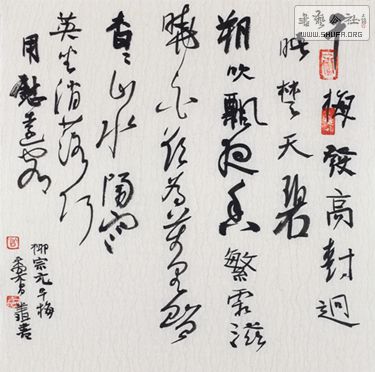 早梅發高对迥
映楚天碧
朔吹飄夜香繁霜滋
曉白欲為萬里贈
杳〻山水隔寒
英坐消落何
用慰遠客
柳宗元早梅
書
书艺公社
www.SHUFA.ORG